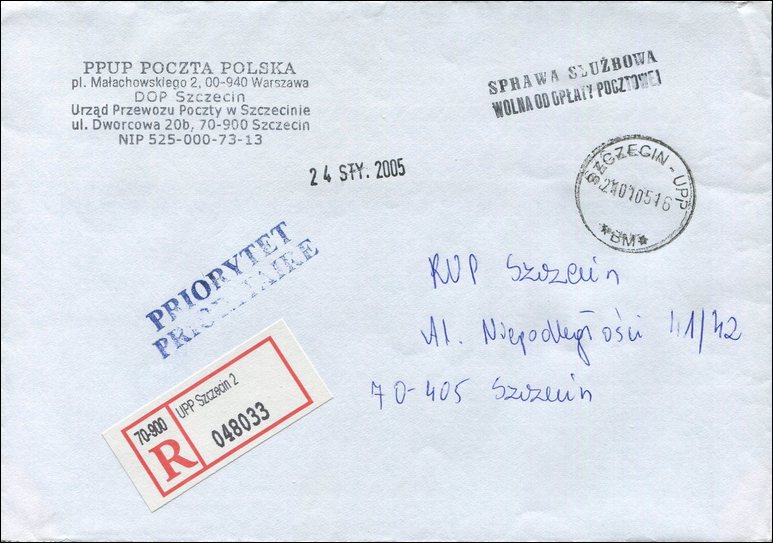 PPUP POCZTA POLSKA
pl. Małachowskiego 2, 00-940 Warszawa
DOP Szczecin
Urząd Przewozu Poczty w Szczecinie
ul. Dworcowa 20b, 70-900 Szczecin
NIP 525-000-73-13
SPRAWA SŁUŻBOWA
WOLNA OD OPŁATY POCZTOWEJ
24 STY. 2005
SZCZECIN - UPP
*BM*
PRIORYTET
PRIORITAIRE
RUP Szczecin
Al. Niepodległości 41/42
70-405 Szczecin
70-900
UPP Szczecin 2
R
048033